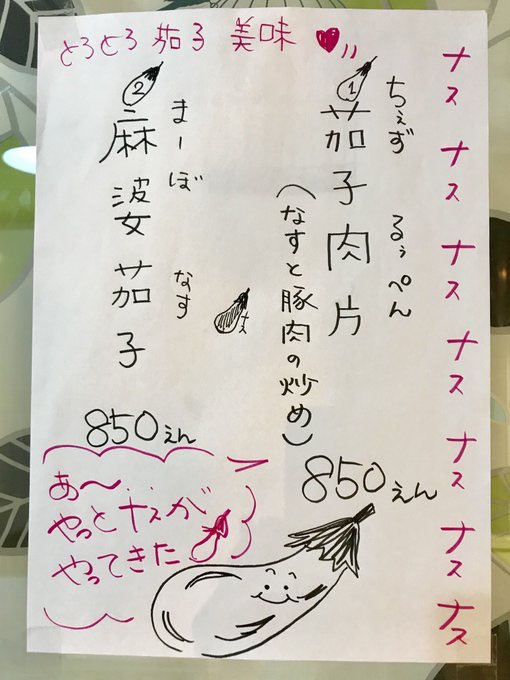 とろとろ 茄子 美味
ナス ナス ナス ナス ナス ナス ナス
①茄子肉片
ちぇず るぅぺん
(なすと豚肉の炒め)
850えん
②麻婆茄子
まーぼ なす
850えん
ナス
あ〜...
やっとナスが
やってきた